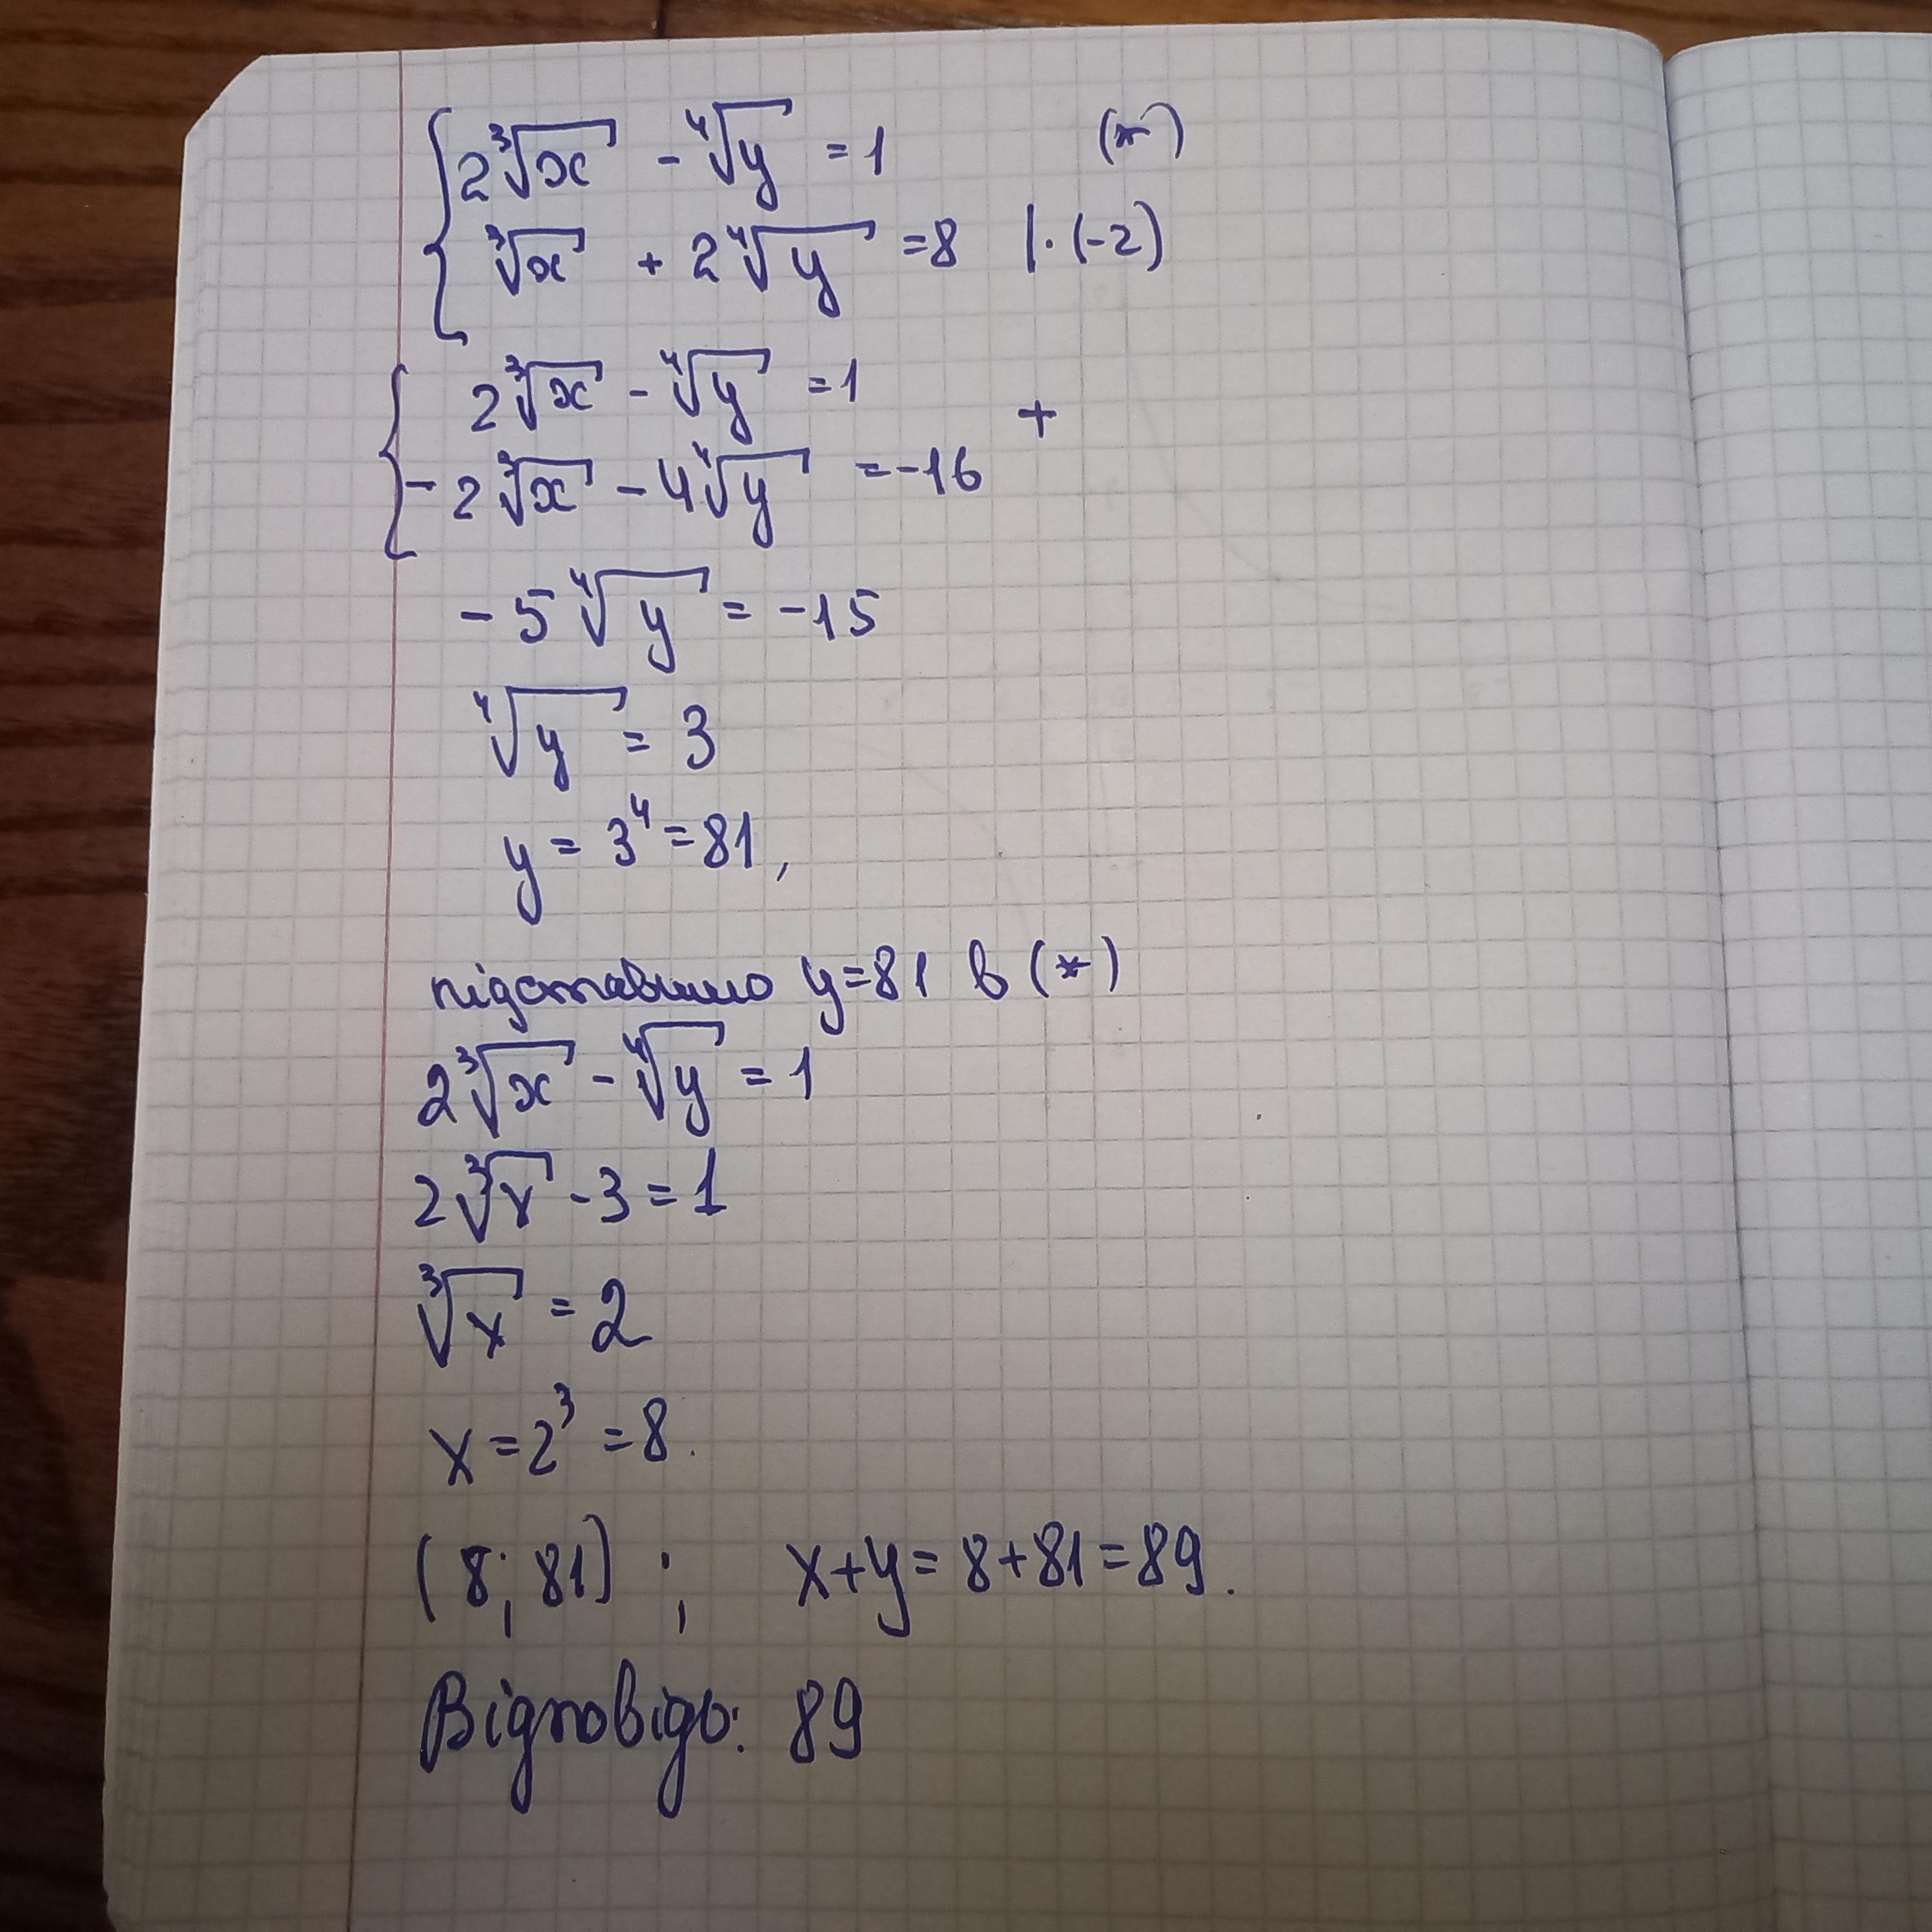 2∛x - ∜y = 1 (*)
∛x + 2∜y = 8 | · (-2)
2∛x - ∜y = 1
+
-2∛x - 4∜y = -16
-5∜y = -15
∜y = 3
y = 3⁴ = 81,
підставимо y=81 в (*)
2∛x - ∜y = 1
2∛x - 3 = 1
∛x = 2
x = 2³ = 8.
(8; 81) ; x+y = 8+81 = 89.
Відповідь: 89